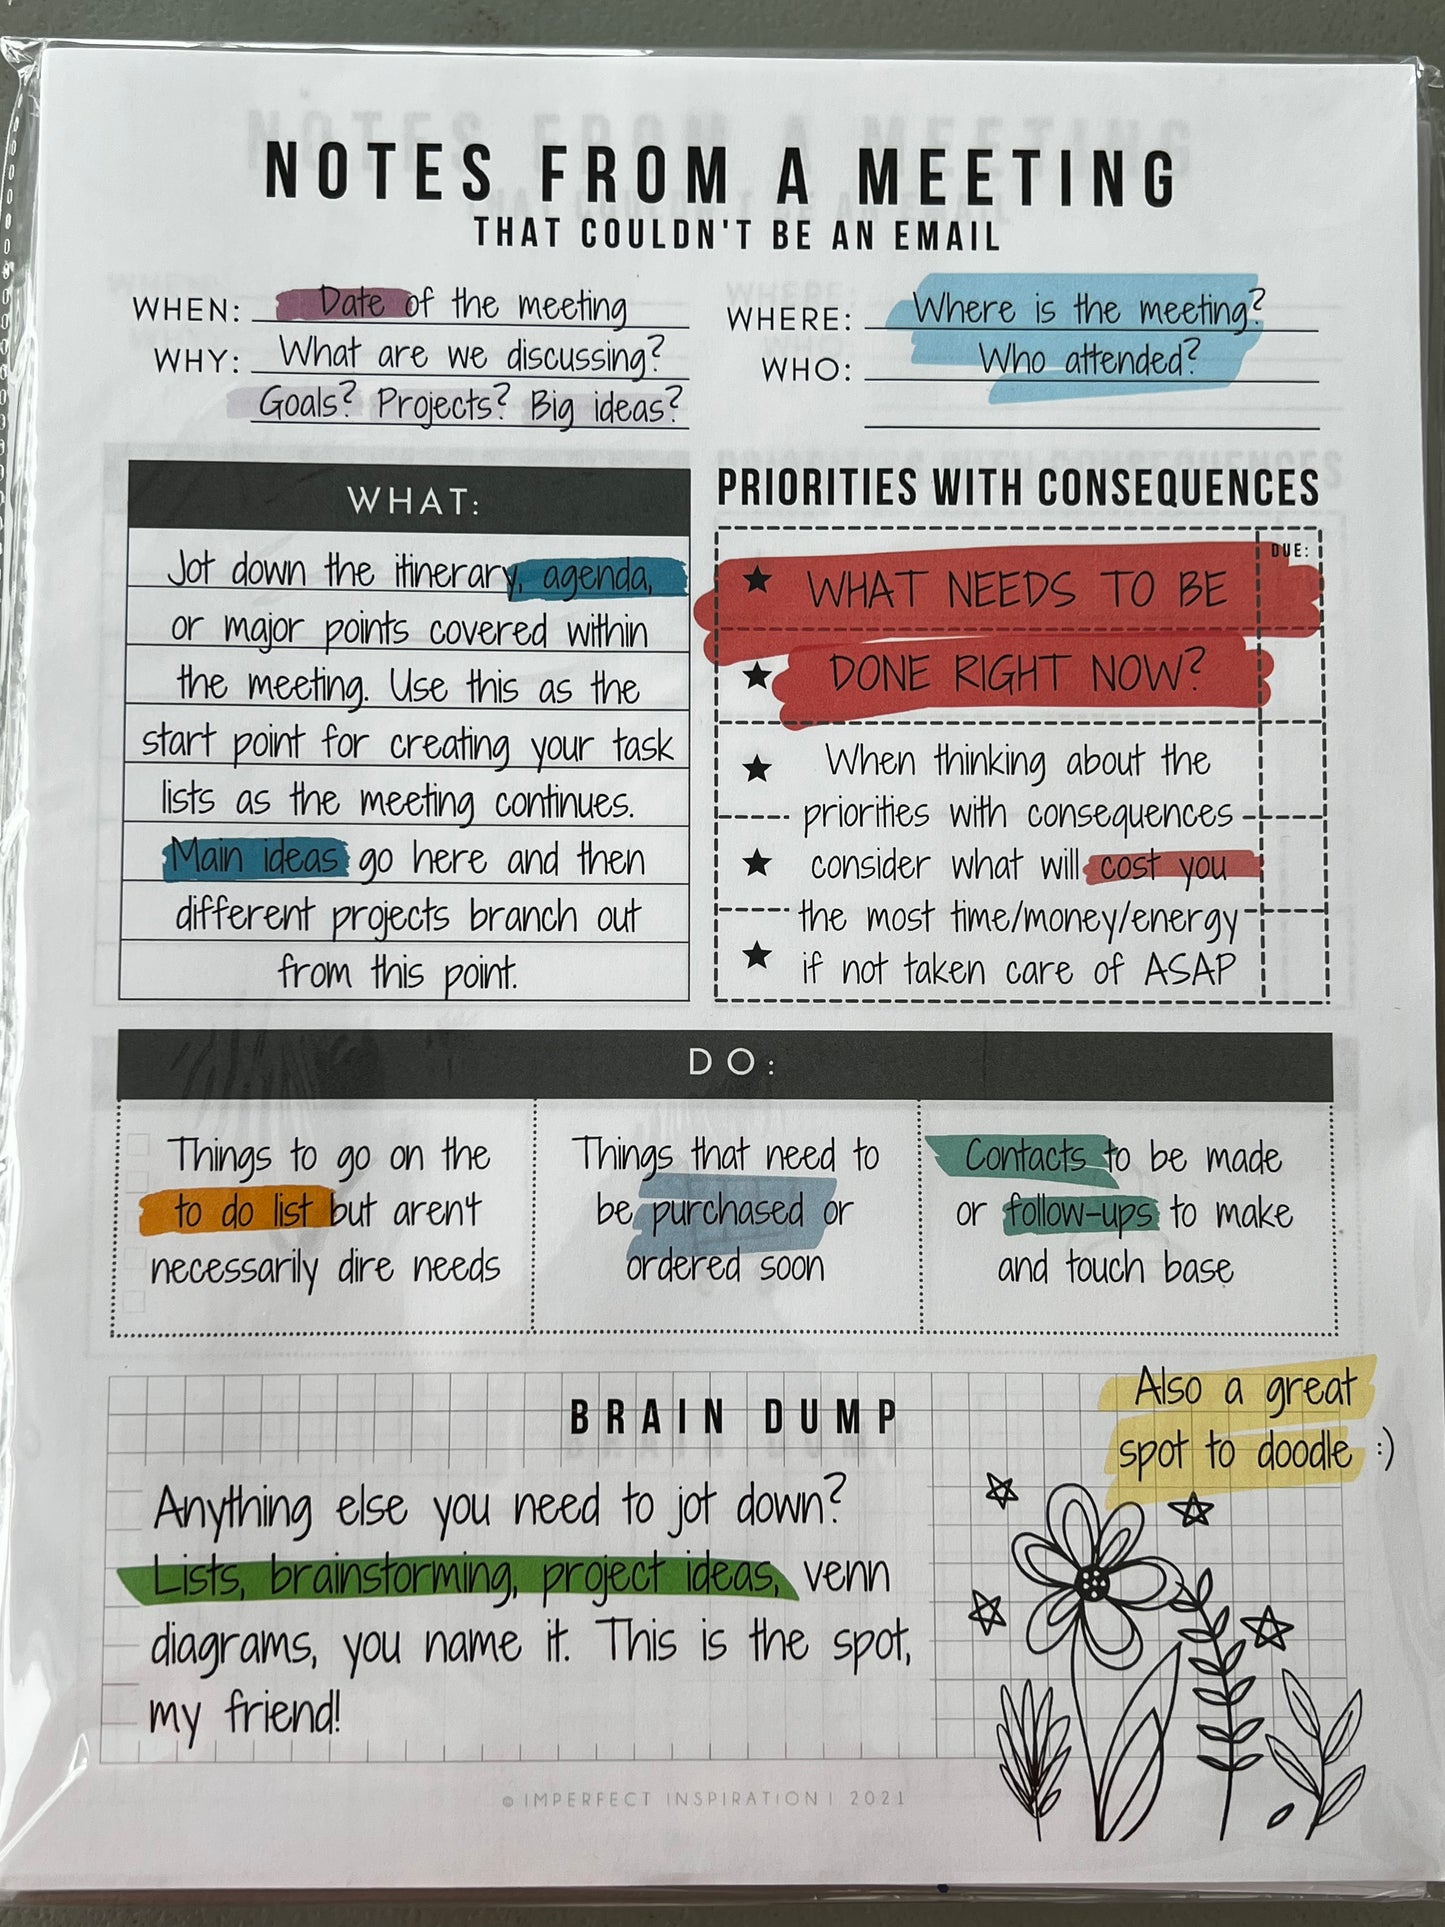 NOTES FROM A MEETING
THAT COULDN'T BE AN EMAIL
WHEN: Date of the meeting
WHY: What are we discussing?
Goals? Projects? Big ideas?
WHERE: Where is the meeting?
WHO: Who attended?
WHAT:
Jot down the itinerary, agenda,
or major points covered within
the meeting. Use this as the
start point for creating your task
lists as the meeting continues.
Main ideas go here and then
different projects branch out
from this point.
PRIORITIES WITH CONSEQUENCES
DUE:
WHAT NEEDS TO BE
DONE RIGHT NOW?
When thinking about the
priorities with consequences
consider what will cost you
the most time/money/energy
if not taken care of ASAP
DO:
Things to go on the
to do list but aren't
necessarily dire needs
Things that need to
be purchased or
ordered soon
Contacts to be made
or follow-ups to make
and touch base
BRAIN DUMP
Also a great
spot to doodle :)
Anything else you need to jot down?
Lists, brainstorming, project ideas, venn
diagrams, you name it. This is the spot,
my friend!
© IMPERFECT INSPIRATION | 2021